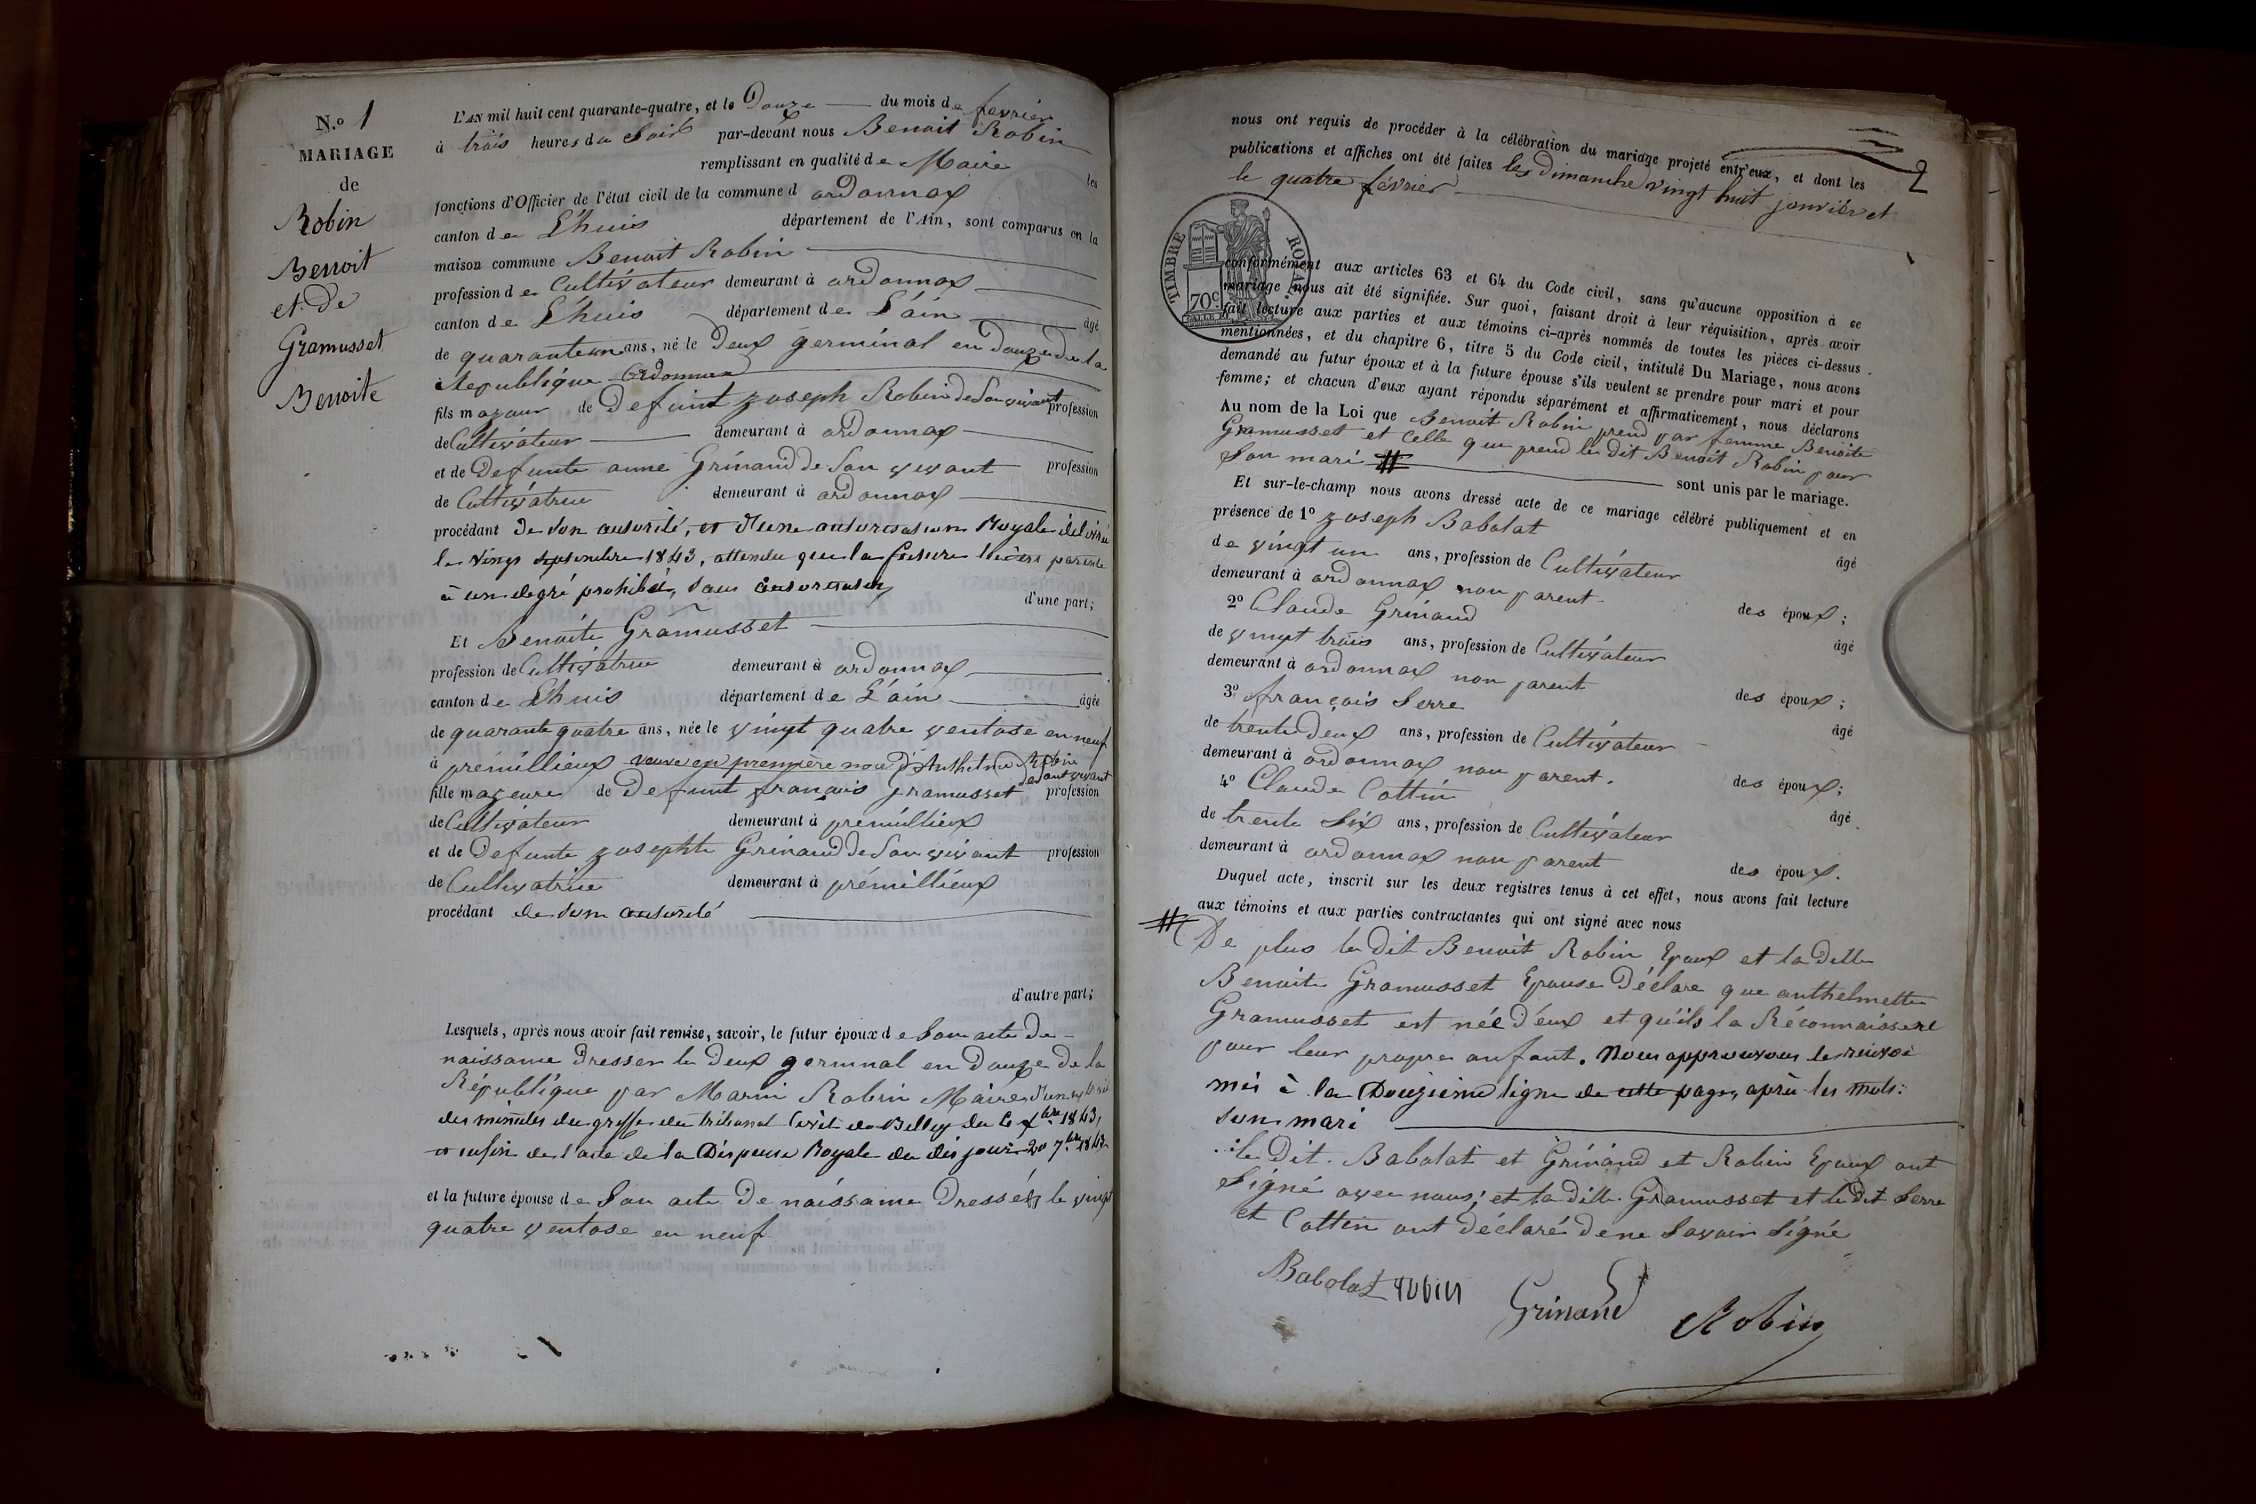 N.o 1
MARIAGE
de
Robin
Benoit
et De
Gramusset
Benoite
L'AN mil huit cent quarante-quatre, et le Douze du mois de fevrier
à trois heures du Soir par-devant nous Benoit Robin
remplissant en qualité de Maire les
fonctions d'Officier de l'état civil de la commune d ordonnax
canton de L'huis département de l'Ain, sont comparus en la
maison commune Benoit Robin
profession de Cultivateur demeurant à ordonnax
canton de L'huis département de L'ain âgé
de quarante un ans, né le Deux germinal en douze de la
Republique Ordonnax
fils majeur de Defunt Joseph Robin de Son vivant profession
de Cultivateur demeurant à ordonnax
et de Defunte anne Grinand de Son vivant profession
de Cultivatrice demeurant à ordonnax
procédant de son autorité, et d'une autorisation Royale délivrée
le vingt septembre 1843, attendu que la future lui est parente
à un degré prohibé, sans autorisation
d'une part;
Et Benoite Gramusset
profession de Cultivatrice demeurant à ordonnax
canton de Lhuis département de L'ain âgée
de quarante quatre ans, née le vingt quatre ventose en neuf
à prémillieux veuve en première noce d'Anthelme Robin
fille majeure de Defunt françois Gramusset de son vivant profession
de Cultivateur demeurant à prémillieux
et de Defunte Josephte Grinand de Son vivant profession
de Cultivatrice demeurant à prémillieux
procédant de son autorité
d'autre part;
Lesquels, après nous avoir fait remise, savoir, le futur époux de Son acte De
naissance Dresser le Deux germinal en Douze De la
République par Marin Robin Maire, d'un
des minutes du greffe du tribunal Civil de Belley du 6 xbre 1843,
et enfin de l'acte de la Dispense Royale du dis jour 20 7bre 1843
et la future épouse de Son acte De naissance Dressé le vingt
quatre ventose en neuf
2
nous ont requis de procéder à la célébration du mariage projeté entr'eux, et dont les
publications et affiches ont été faites les Dimanche vingt huit janvier et
le quatre février
TIMBRE ROYAL
70c
conformément aux articles 63 et 64 du Code civil, sans qu'aucune opposition à ce
mariage nous ait été signifiée. Sur quoi, faisant droit à leur réquisition, après avoir
fait lecture aux parties et aux témoins ci-après nommés de toutes les pièces ci-dessus
mentionnées, et du chapitre 6, titre 5 du Code civil, intitulé Du Mariage, nous avons
demandé au futur époux et à la future épouse s'ils veulent se prendre pour mari et pour
femme; et chacun d'eux ayant répondu séparément et affirmativement, nous déclarons
Au nom de la Loi que Benoit Robin prend par femme Benoite
Gramusset et Celle que prend le dit Benoit Robin pour
Son mari #
sont unis par le mariage.
Et sur-le-champ nous avons dressé acte de ce mariage célébré publiquement et en
présence de 1o Joseph Babolat
âgé
de vingt un ans, profession de Cultivateur
demeurant à ordonnax non parent des époux;
2o Claude Grinand
âgé
de vingt trois ans, profession de Cultivateur
demeurant à ordonnax non parent des époux;
3o françois Serre
âgé
de trente Deux ans, profession de Cultivateur
demeurant à ordonnax non parent. des époux;
4o Claude Cottin
âgé
de trente Six ans, profession de Cultivateur
demeurant à ordonnax non parent des époux.
Duquel acte, inscrit sur les deux registres tenus à cet effet, nous avons fait lecture
aux témoins et aux parties contractantes qui ont signé avec nous
# De plus le Dit Benoit Robin Epoux et la Ditte
Benoite Gramusset Epouse Déclare que anthelmette
Gramusset est née D'eux et qu'ils la Réconnaissent
pour leur propre enfant. Nous approuvons le renvoi
mis à la Douzième ligne de cette page, après les mots:
son mari
le Dit. Babolat et Grinand et Robin Epoux ont
Signé avec nous; et la Ditte Gramusset et le dit Serre
et Cottin ont déclaré de ne Savoir Signé
Babolat robin
Grinand
Robin